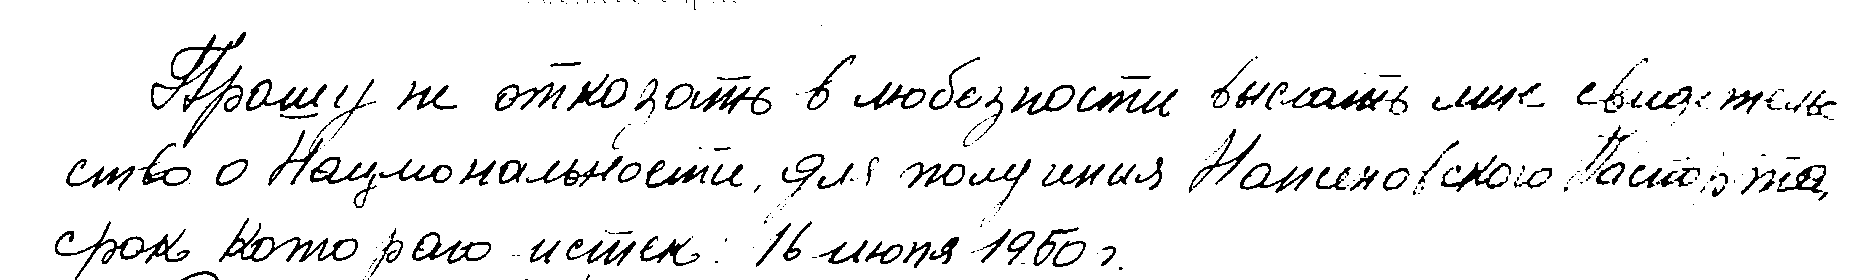 Прошу не отказать в любезности выслать мне свидетель-
ство о Национальности, для получения Нансеновского Паспорта,
срок котораго истек 16 июня 1950 г.